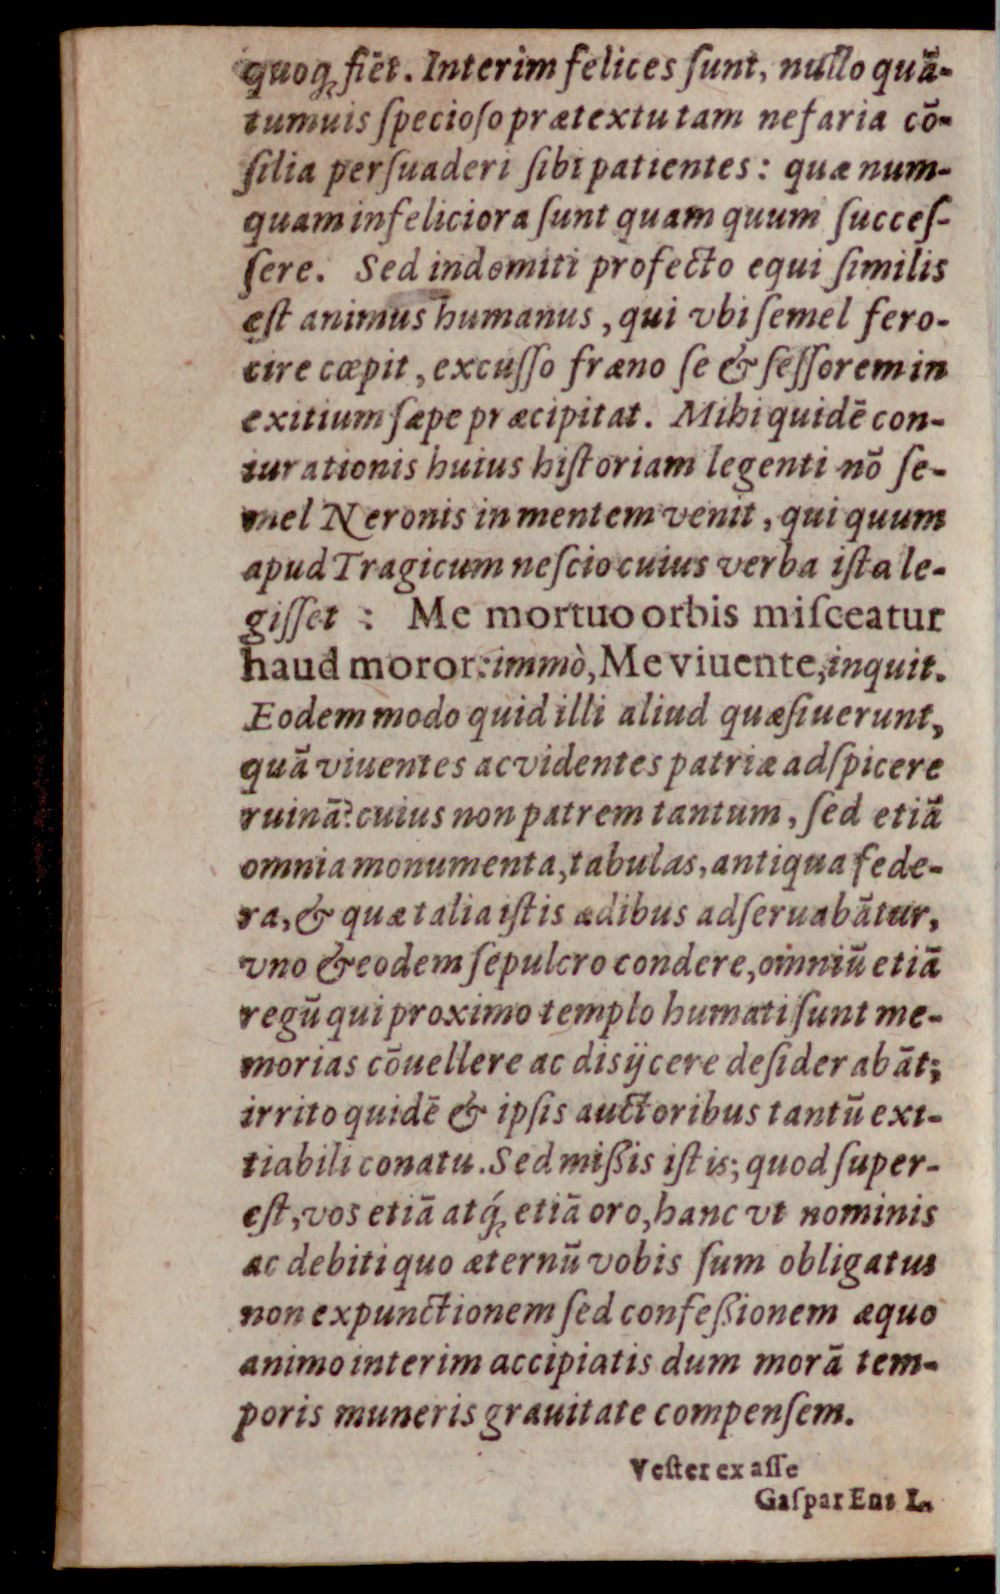 quoq́ꝫ fiēt. Interim felices ſunt, nullo quā-
tumuis ſpecioſo prætextu tam nefaria cō-
ſilia perſuaderi ſibi patientes: quæ num-
quam infeliciora ſunt quam quum ſucceſ-
ſere. Sed indomiti profecto equi ſimilis
eſt animus humanus, qui vbi ſemel fero-
cire cœpit, excuſſo fræno ſe & ſeſſorem in
exitium ſæpe præcipitat. Mihi quidē con-
iurationis huius hiſtoriam legenti nō ſe-
mel Neronis in mentem venit, qui quum
apud Tragicum neſcio cuius verba iſta le-
giſſet : Me mortuo orbis miſceatur
haud moror: immò, Me viuente, inquit.
Eodem modo quid illi aliud quæſiuerunt,
quā viuentes ac videntes patriæ adſpicere
ruinā? cuius non patrem tantum, ſed etiā
omnia monumenta, tabulas, antiqua fede-
ra, & quæ talia iſtis ædibus adſeruabātur,
vno & eodem ſepulcro condere, omniū etiā
regū qui proximo templo humati ſunt me-
morias cōuellere ac disijcere deſiderabāt;
irrito quidē & ipſis auctoribus tantū exi-
tiabili conatu. Sed mißis iſtis; quod ſuper-
eſt, vos etiā atq́ꝫ etiā oro, hanc vt nominis
ac debiti quo æternū vobis ſum obligatus
non expunctionem ſed confeßionem æquo
animo interim accipiatis dum morā tem-
poris muneris grauitate compenſem.
Veſter ex aſſe
Gaſpar Ens L.